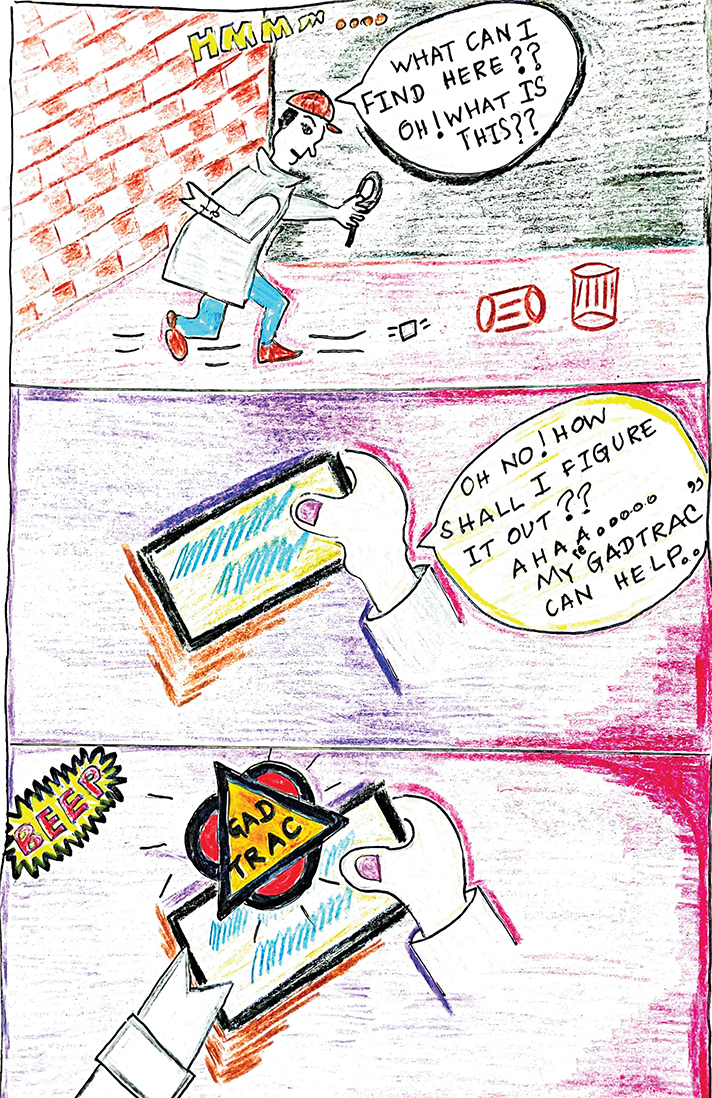 HMMMM....
WHAT CAN I
FIND HERE??
OH! WHAT IS
THIS??
OH NO! HOW
SHALL I FIGURE
IT OUT??
AHAA......
MY "GADTRAC"
CAN HELP..
BEEP
GAD
TRAC